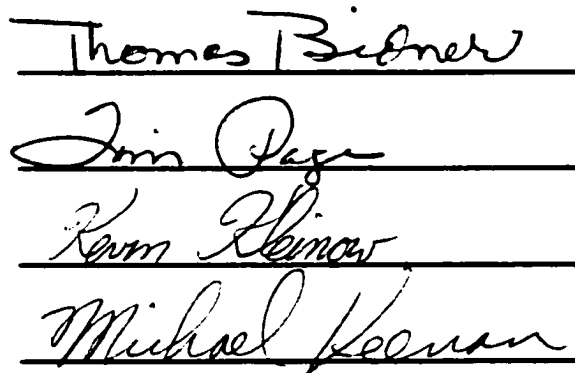 Thomas Bidner
Tim Page
Kevin Kleinow
Michael Keenan